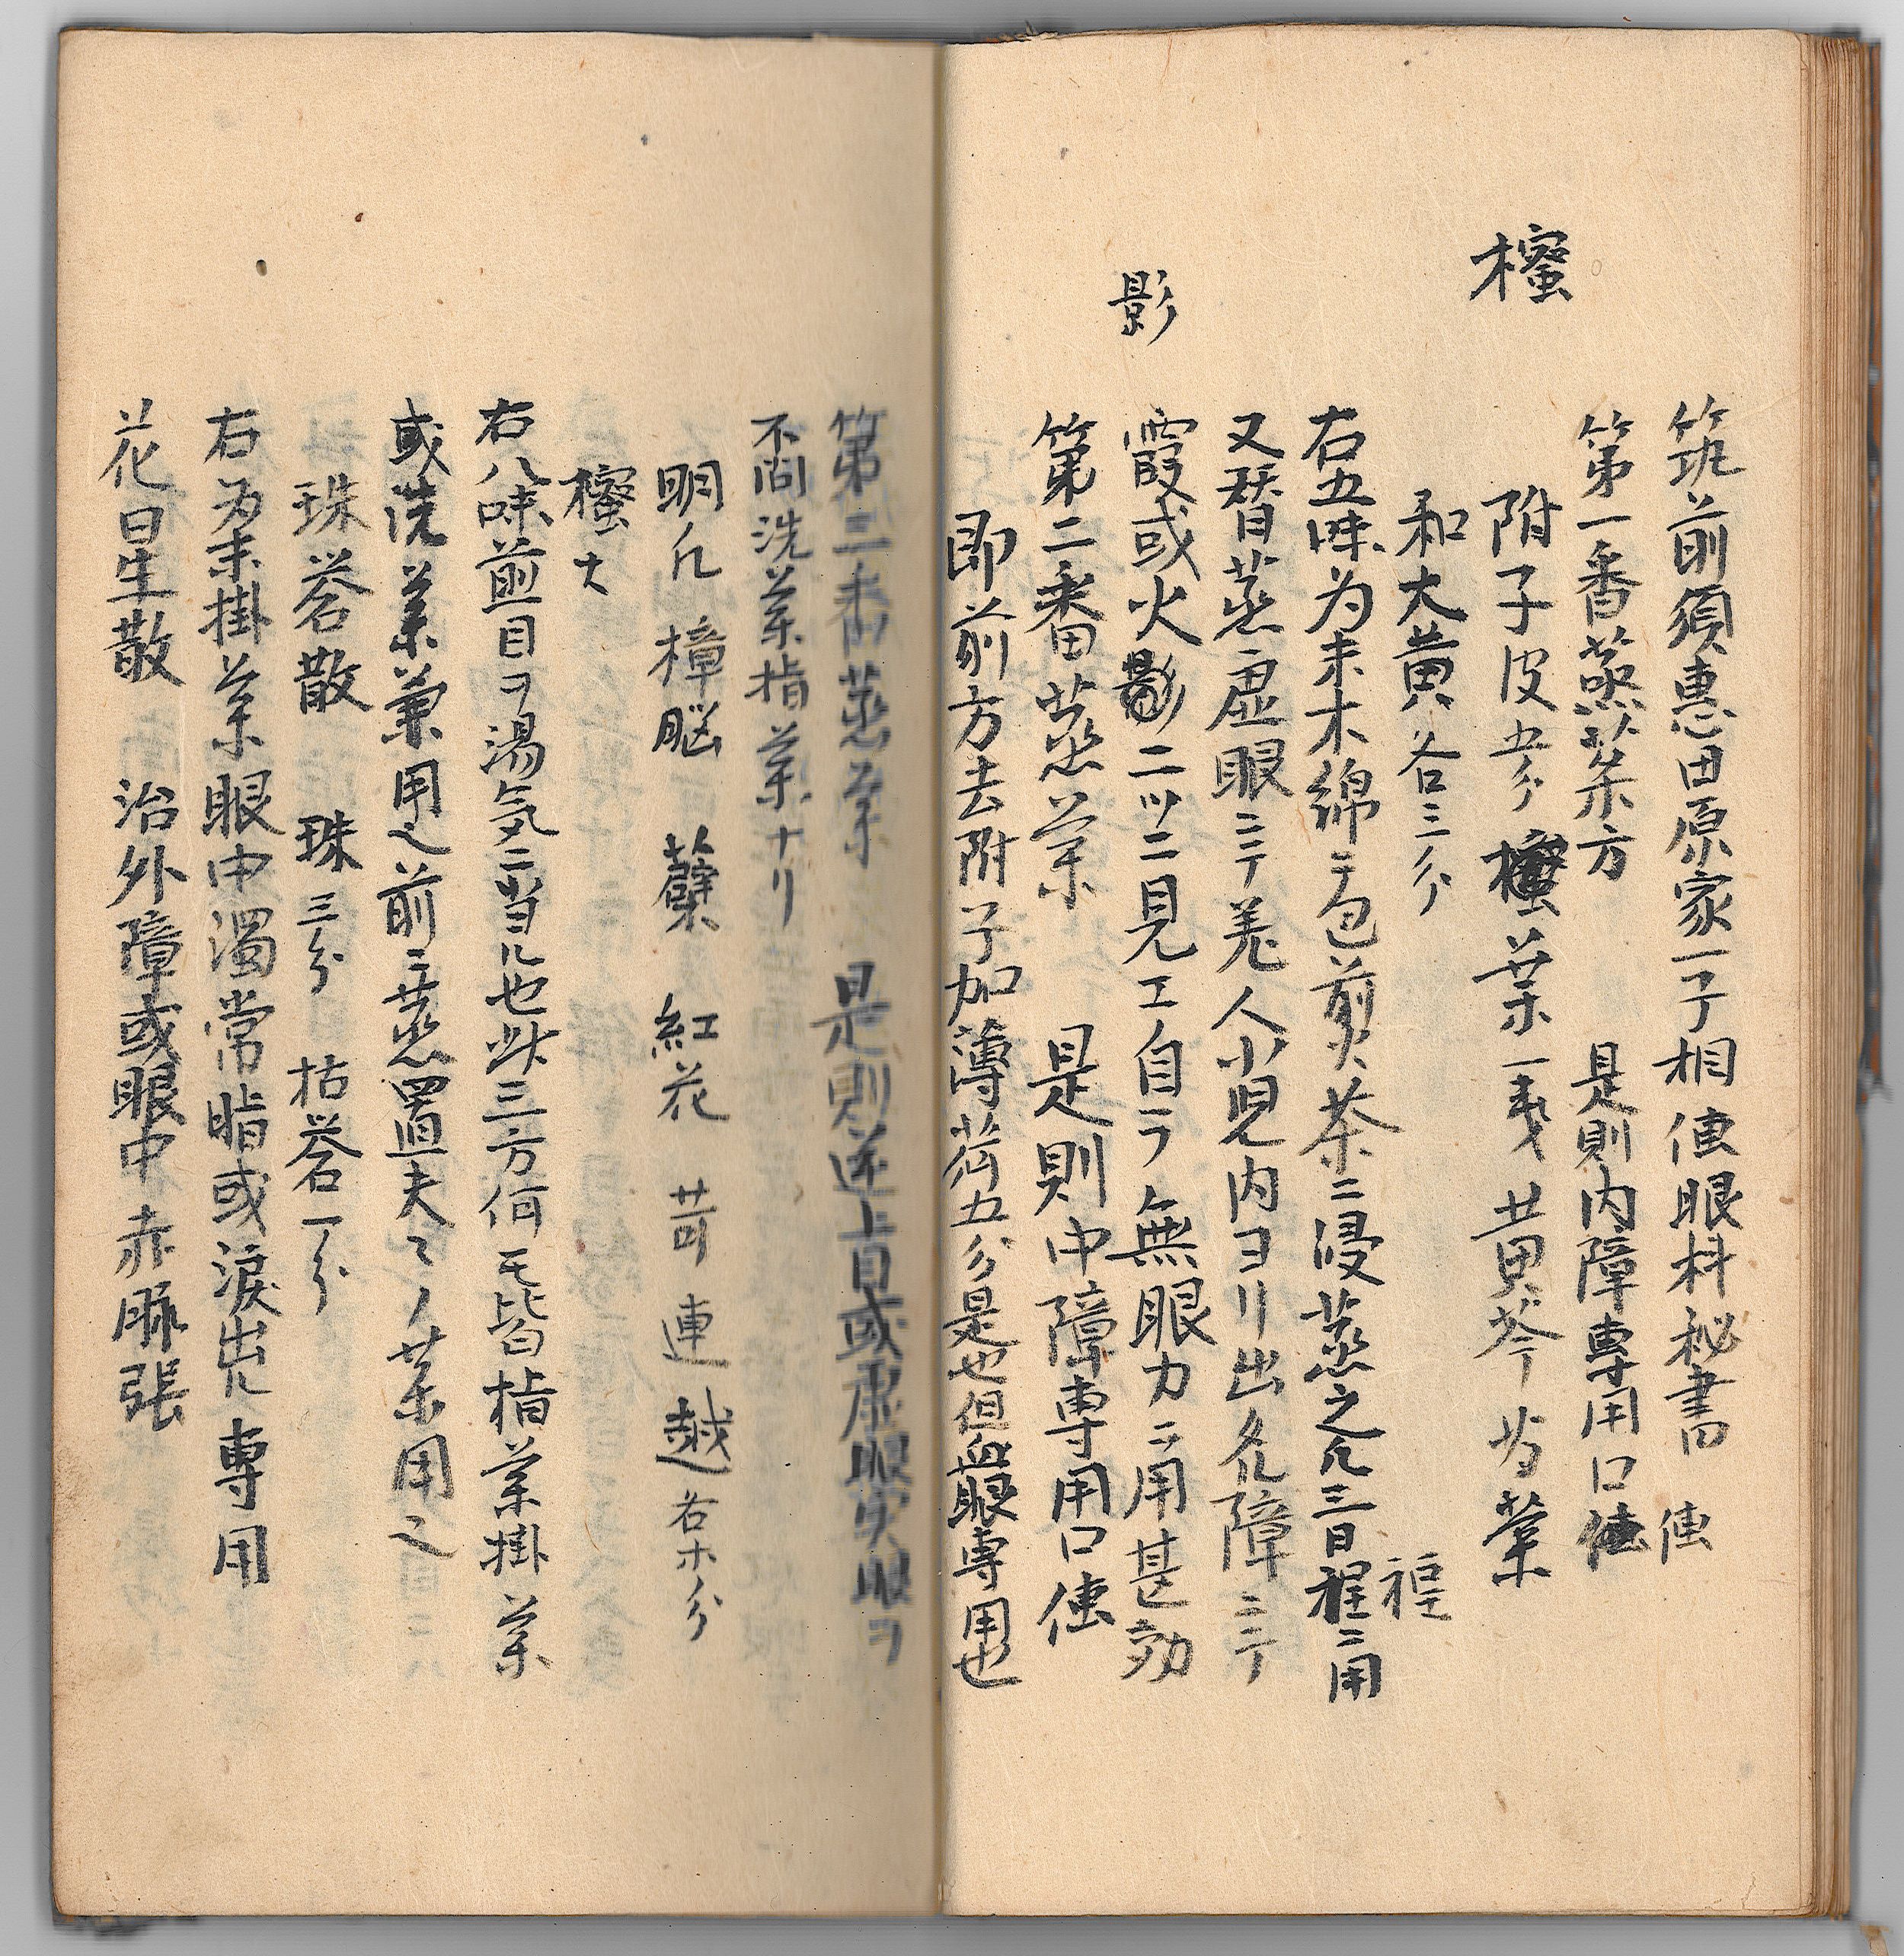 筑前須惠田原家一子相傳眼科秘書 傳
第一番蒸薬方 是則内障専用口傳
櫁
附子皮五分 櫁葉一戔 黄芩 芍薬
和大黄各三分
程
右五味为末木綿ニ包煎茶ニ浸蒸之凡三日程ニ用
又替蒸虚眼ニテ羗人小児内ヨリ出タル障ニテ
影
霞或火影二ツニ見エ自ラ無眼力ニ用甚効
第二番蒸薬 是則中障専用口傳
即前方去附子加薄荷五分是也但血眼専用也
第三番蒸薬 是則逆上目或虚眼実眼ヲ
不問洗薬指薬ナリ
明凡 樟脳 蘗 紅花 苛 連 越各ホ分
櫁大
右八味煎目ヲ湯気ニ当ル也此三方何モ皆指薬掛薬
或洗薬兼用之前ニ蒸置夫々ノ薬用之
珠礬散 珠三分 枯礬一分
右为末掛薬眼中濁常脂或涙出ル専用
花星散 治外障或眼中赤脈張